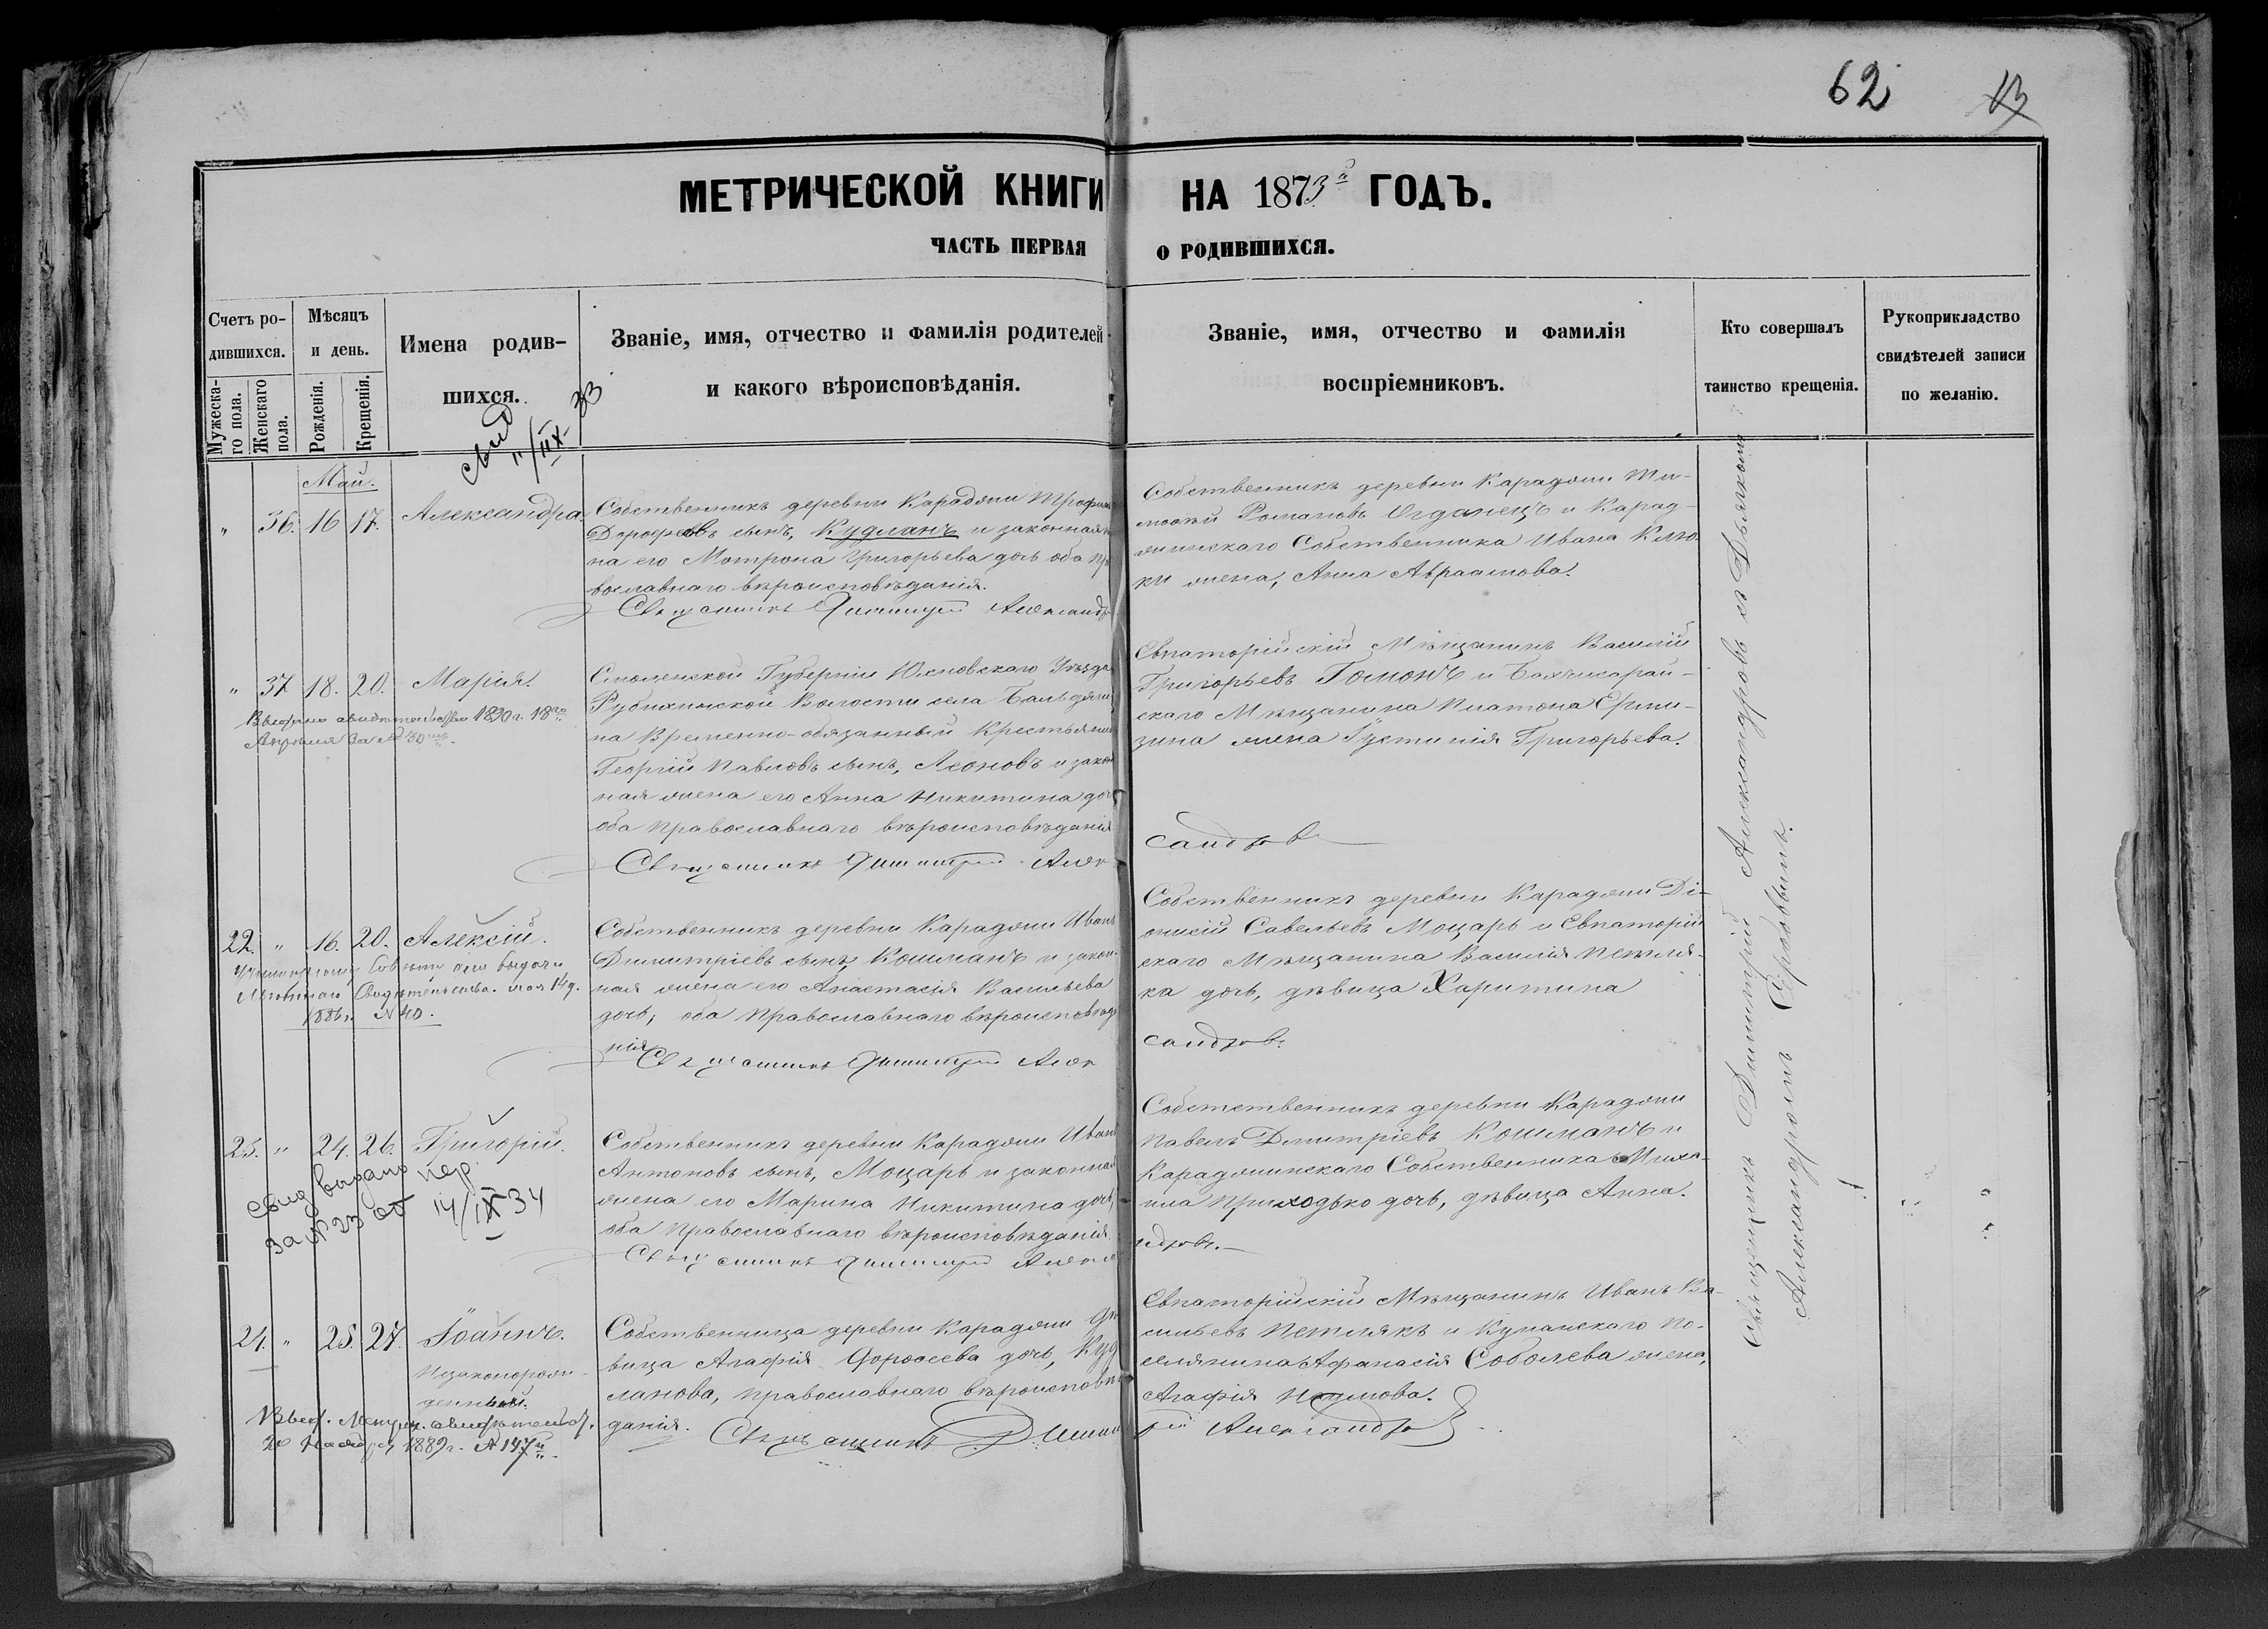 62
13
МЕТРИЧЕСКОЙ КНИГИ НА 1873й ГОДЪ.
ЧАСТЬ ПЕРВАЯ О РОДИВШИХСЯ.
Счетъ ро-
дившихся.
Мужеска-
го пола.
Женскаго
пола.
Мѣсяцъ
и день.
Рожденія.
Крещенія.
Имена родив-
шихся.
Званіе, имя, отчество и фамилія родителей
и какого вѣроисповѣданія.
Званіе, имя, отчество и фамилія
воспріемниковъ.
Кто совершалъ
таинство крещенія.
Рукоприкладство
свидѣтелей записи
по желанію.
свид
11/IX-33
Май.
" 36. 16 17. Александра.
Собственникъ деревни Караджи Трофим
Дорофеевъ сынъ, Кудланъ и законная
на его Мотрона Григорьева дочь оба пр
вославнаго вѣроисповѣданія.
Священникъ Димитрій Александр
Собственникъ деревни Караджи Ти-
мофѣй Романовъ Огданецъ и Карад-
жинскаго Собственника Ивана Клю-
ки жена, Анна Авраамова.
" 37. 18. 20. Марія.
Выдано свидѣтельство 1890 г. 18го
Апрѣля за №
Смоленской Губерніи Юхновскаго Уѣзда
Рубихинской Волости села
на Временно-обязанный Крестьянин
Георгій Павловъ сынъ, Леоновъ и закон
ная жена его Анна Никитина доч
оба православнаго вѣроисповѣданія
Священникъ Димитрій Алек
Евпаторійскій Мѣщанинъ Василій
Григорьевъ Гомонъ и Бахчисарай-
скаго Мѣщанина Платона Ерми-
зина жена Іустинія Григорьева.
сандровъ
22. " 16. 20. Алексій.
Совѣту для выдачи
Льготнаго Свидѣтельства. мая 14 д.
1886 г. № 40.
Собственникъ деревни Караджи Иванъ
Димитріевъ сынъ, Кошманъ и закон-
ная жена его Анастасія Васильева
дочь, оба православнаго вѣроисповѣда
нія
Священникъ Димитрій Алек
Собственникъ деревни Караджи Ді-
онисій Савельевъ Моцарь и Евпаторій
скаго Мѣщанина Василія Петля-
ка дочь, дѣвица Харитина
сандровъ.
23. " 24. 26. Григорій.
свид выдано пер
за № 23 от 14/IX 34
Собственникъ деревни Караджи Иванъ
Антоновъ сынъ, Моцарь и законная
жена его Марина Никитина дочь,
оба православнаго вѣроисповѣданія.
Священникъ Димитрій Алекса
Собстственникъ деревни Караджи
Павелъ Дмитріевъ Кошманъ и
Караджинскаго Собственника Миха-
ила Приходько дочь, дѣвица Анна.
ндровъ.
24. " 25. 27. Іоаннъ.
Незаконорож-
денный.
Выд. Метрич. свидѣтельст.
20 Ноября 1889 г. № 147й
Собственница деревни Караджи дѣ
вица Агафія Дорофеева дочь, Куд
ланова, православнаго вѣроисповѣ
данія.
Священникъ Димит
Евпаторійскій Мѣщанинъ Иванъ Ва-
сильевъ Петлякъ и Куманскаго по-
селянина Афанасія Соболева жена,
Агафія Наумова.
рій Александров
Священникъ Димитрій Александровъ съ Дьячкомъ
Александромъ